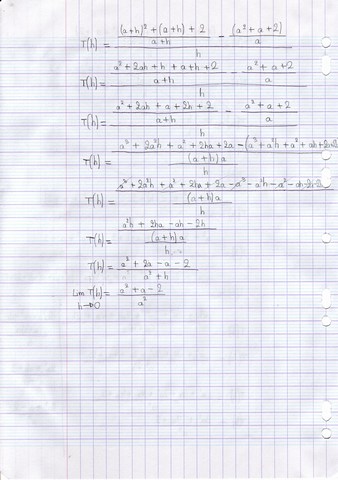 T(h) = (((a+h)² + (a+h) + 2)/(a+h) - (a² + a + 2)/a)/h
T(h) = ((a² + 2ah + h + a+h + 2)/(a+h) - (a² + a + 2)/a)/h
T(h) = ((a² + 2ah + a + 2h + 2)/(a+h) - (a² + a + 2)/a)/h
T(h) = ((a³ + 2a²h + a² + 2ha + 2a - (a³ + a²h + a² + ah + 2a+2h))/((a+h)a))/h
T(h) = ((a³ + 2a²h + a² + 2ha + 2a - a³ - a²h - a² - ah - 2a-2h)/((a+h)a))/h
T(h) = ((a²h + 2ha - ah - 2h)/((a+h)a))/h
T(h) = (a² + 2a - a - 2)/(a² + h)
Lim h→0 T(h) = (a² + a - 2)/a²